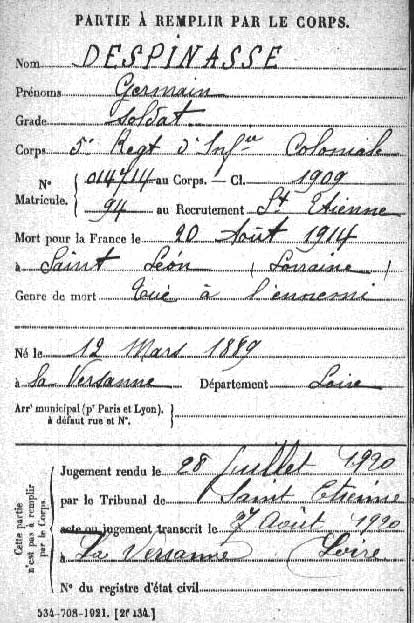 PARTIE À REMPLIR PAR LE CORPS.
Nom DESPINASSE
Prénoms Germain
Grade Soldat
Corps 5e Regt d'Infie Coloniale
No Matricule. { 014714 au Corps. — Cl. 1909
94 au Recrutement St Etienne
Mort pour la France le 20 Août 1914
à Saint Léon (Lorraine)
Genre de mort Tué à l'ennemi
Né le 12 Mars 1889
à La Versanne Département Loire
Arrt municipal (pr Paris et Lyon),
à défaut rue et No.
Cette partie n'est pas à remplir par le Corps.
Jugement rendu le 28 Juillet 1920
par le Tribunal de Saint Etienne
acte ou jugement transcrit le 27 Août 1920
à La Versanne Loire
No du registre d'état civil
534-708-1921. [26434.]